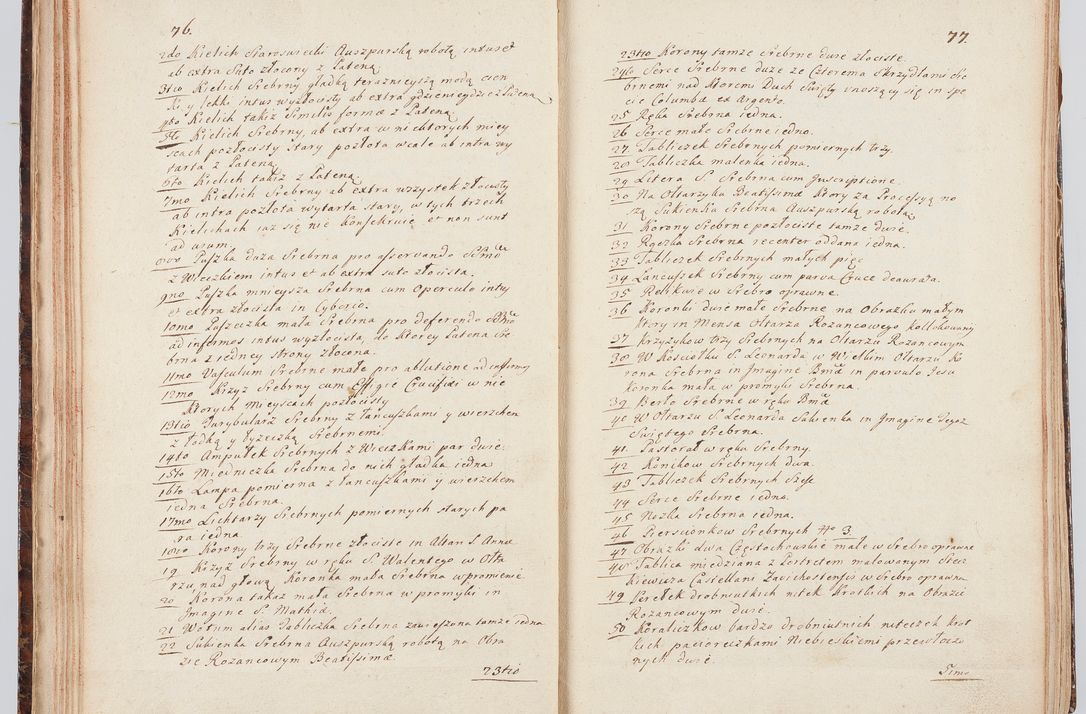 76.
2do Kielich Staroswiecki Auszpurską robotą intus et
ab extra Suto złocony z Pateną.
3tio Kielich Srebrny gładką teraznieyszą modą cien
ki y lekki intus wyzłocisty ab extra gdzieniegdzie z Pateną
4to Kielich takiz Similis formæ z Pateną
5to Kielich Srebrny, ab extra w niektorych miey
scach pozłocisty stary pozłota wcale ab intra wy
tarta z Pateną.
6to Kielich takiz z Pateną.
7mo Kielich Srebrny ab extra wszystek złocisty
ab intro pozłota wytarta stary, w tych trzech
Kielichach iaz się nie konsekruie et non sunt
ad usum.
8vo Puszka duza Srebrna pro asservando SSmo
z Wieczkiem intus et ab extra suto złocista.
9no Puszka mnieysza Srebrna cum operculo intus
et extra złocista in Cyborio.
10mo Puszeczka mała Srebrna pro deferendo SSmo
ad infirmos intus wyzłocista, do ktorey Patena Sre
brna z iedney strony złocona.
11mo Vasculum Srebrne małe pro ablutione ad infirmos
12mo Krzyz Srebrny cum Effigie Crucifixi w nie
ktorych mieyscach pozłocisty
13tio Turybularz Srebrny z łancuszkami y wierzchem
z łodką y łyzeczką Srebrnemi.
14to Ampułek Srebrnych z Wieczkami par dwie.
15to Miedniczka Srebrna do nich gładka iedna
16to Lampa pomierna z łancuszkami y wierzchem
iedna Srebrna.
17mo Lichtarzy Srebrnych pomiernych starych pa
ra iedna.
18vo Korony trzy Srebrne złociste in Altari S. Annæ
19 Krzyz Srebrny w ręku S. Walentego w Ołta
rzu, nad głową Koronka mała Srebrna w promienie.
20 Korona takaz mała Srebrna w promyki in
Imagine S. Mathiæ.
21 Wotum alias Tabliczka Srebrna zawieszona tamze iedna
22 Sukienka Srebrna Auszpurską robotą na Obra
zie Rozancowym Beatissimæ
23tio
77.
23tio Korony tamze Srebrne dwie złociste.
24to Serce Srebrne duze ze Czterema Skrzydłami Sre
brnemi nad ktoremi Duch Swięty unoszący się in spe
cie Columbæ ex Argento.
25 Ręka Srebrna iedna.
26 Serce małe Srebrne iedno.
27 Tabliczek Srebrnych pomiernych trzy.
28 Tabliczka malenka iedna.
29 Litera S. Srebrna cum Inscriptione.
30 Na Ołtarzyku Beatissimæ ktory za Processyą no
szą Sukienka Srebrna Auszpurską robotą
31 Korony Srebrne pozłociste tamze dwie.
32 Rączka Srebrna recenter oddana iedna.
33 Tabliczek Srebrnych małych pięc
34 Łancuszek Srebrny cum parva Cruce deaurata.
35 Relikwie w Srebro oprawne.
36 Koronki dwie małe Srebrne na Obrazku małym
ktory in Mensa Ołtarza Rozancowego kollokowany
37 Krzyzykow trzy Srebrnych na Ołtarzu Rozancowym
38 W Kosciołku S. Leonarda w Wielkim Ołtarzu Ko
rona Srebrna in Imagine Bmæ in parvulo Jesu
koronka mała w promyki Srebrna.
39 Berło Srebrne w ręku Bmæ
40 W Ołtarzu S. Leonarda Sukienka in Imagine tegoz
Swiętego Srebrna.
41. Pastorał w ręku Srebrny.
42 Konikow Srebrnych dwa.
43 Tabliczek Srebrnych Szesc
44 Serce Srebrne iedno.
45 Nozka Srebrna iedna.
46 Pierscionkow Srebrnych No 3.
47 Obrazki dwa Częstochowskie małe w Srebro oprawne
48 Tablica miedziana z Portretem malowanym Siec
kiewicza Castellani Zavichostensis w Srebro oprawna
49 Perełek drobniutkich nitek krotkich na Obrazie
Rozancowym dwie.
50 Koralczkow bardzo drobniusnich niteczek krot
kich pacioreczkami Niebieskiemi przewłoczo
nych dwie.
51mo